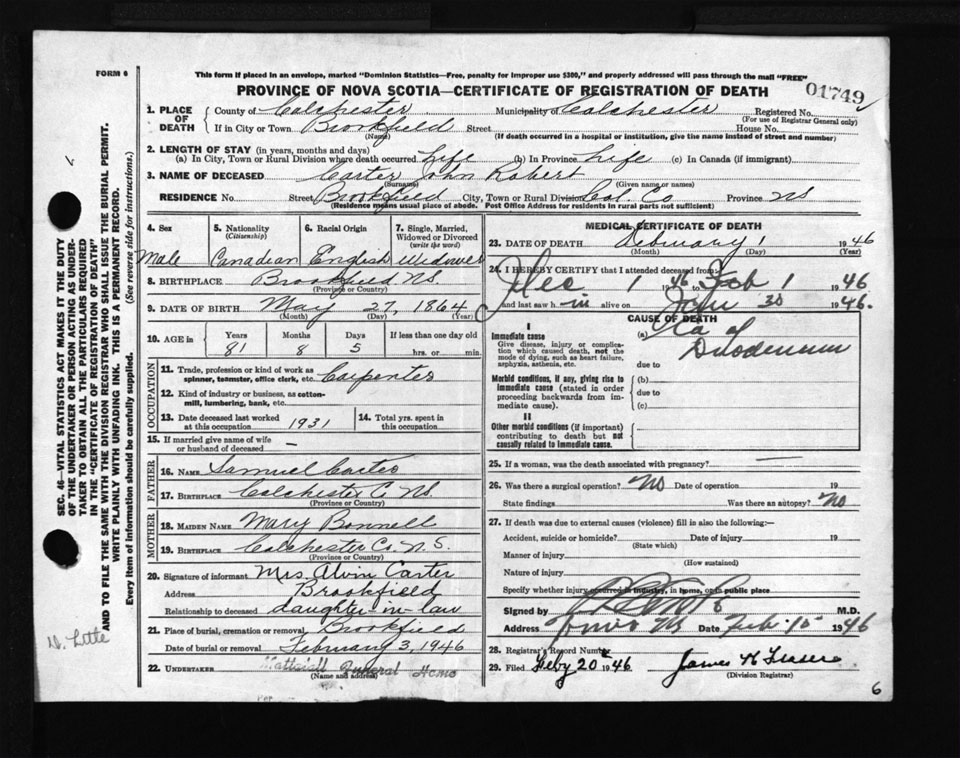 FORM 6
This form if placed in an envelope, marked "Dominion Statistics—Free, penalty for improper use $300," and properly addressed will pass through the mail "FREE"
PROVINCE OF NOVA SCOTIA—CERTIFICATE OF REGISTRATION OF DEATH
01749
1. PLACE OF DEATH County of Colchester Municipality of Colchester Registered No.
(For use of Registrar General only)
If in City or Town Brookfield Street House No.
(Name) (If death occurred in a hospital or institution, give the name instead of street and number)
2. LENGTH OF STAY (in years, months and days)
(a) In City, Town or Rural Division where death occurred Life (b) In Province Life (c) In Canada (if immigrant)
3. NAME OF DECEASED Carter John Robert
(Surname) (Given name or names)
RESIDENCE No. Street Brookfield City, Town or Rural Division Col. Co Province NS
(Residence means usual place of abode. Post Office Address for residents in rural parts not sufficient)
4. Sex 5. Nationality (Citizenship) 6. Racial Origin 7. Single, Married, Widowed or Divorced (write the word)
Male Canadian English Widower
8. BIRTHPLACE Brookfield NS.
(Province or Country)
9. DATE OF BIRTH May 27, 1864
(Month) (Day) (Year)
10. AGE in Years Months Days If less than one day old
81 8 5 hrs. or min.
OCCUPATION
11. Trade, profession or kind of work as spinner, teamster, office clerk, etc. Carpenter
12. Kind of industry or business, as cotton-mill, lumbering, bank, etc.
13. Date deceased last worked at this occupation 1931 14. Total yrs. spent in this occupation
15. If married give name of wife or husband of deceased —
FATHER
16. NAME Samuel Carter
17. BIRTHPLACE Colchester Co NS.
(Province or Country)
MOTHER
18. MAIDEN NAME Mary Bonnell
19. BIRTHPLACE Colchester Co. N.S.
(Province or Country)
20. Signature of informant Mrs. Alvin Carter
Address Brookfield
Relationship to deceased daughter-in-law
21. Place of burial, cremation or removal Brookfield
Date of burial or removal February 3, 1946
22. UNDERTAKER Mattatall Funeral Home
(Name and address)
MEDICAL CERTIFICATE OF DEATH
23. DATE OF DEATH February 1 1946
(Month) (Day) (Year)
24. I HEREBY CERTIFY that I attended deceased from
1 1946 Feb 1 1946
and last saw h im alive on Jan 30 1946.
CAUSE OF DEATH
I
Immediate cause (a) Ca of Duodenum
Give disease, injury or complication which caused death, not the mode of dying, such as heart failure, asphyxia, asthenia, etc.
due to
Morbid conditions, if any, giving rise to immediate cause (stated in order proceeding backwards from immediate cause). (b)
due to
(c)
II
Other morbid conditions (if important) contributing to death but not causally related to immediate cause.
25. If a woman, was the death associated with pregnancy? —
26. Was there a surgical operation? No Date of operation 19
State findings Was there an autopsy? No
27. If death was due to external causes (violence) fill in also the following:—
Accident, suicide or homicide? Date of injury 19
(State which)
Manner of injury
(How sustained)
Nature of injury
Specify whether injury occurred in industry, in home, or in public place
Signed by M.D.
Address Truro NS Date Feb 15 1946
28. Registrar's Record Number
29. Filed Feby 20 1946 James K Fraser
(Division Registrar)
6
SEC. 46—VITAL STATISTICS ACT MAKES IT THE DUTY
OF THE UNDERTAKER OR PERSON ACTING AS UNDER-
TAKER TO OBTAIN ALL THE PARTICULARS REQUIRED
IN THE "CERTIFICATE OF REGISTRATION OF DEATH"
AND TO FILE THE SAME WITH THE DIVISION REGISTRAR WHO SHALL ISSUE THE BURIAL PERMIT.
WRITE PLAINLY WITH UNFADING INK. THIS IS A PERMANENT RECORD.
Every item of information should be carefully supplied. (See reverse side for instructions.)